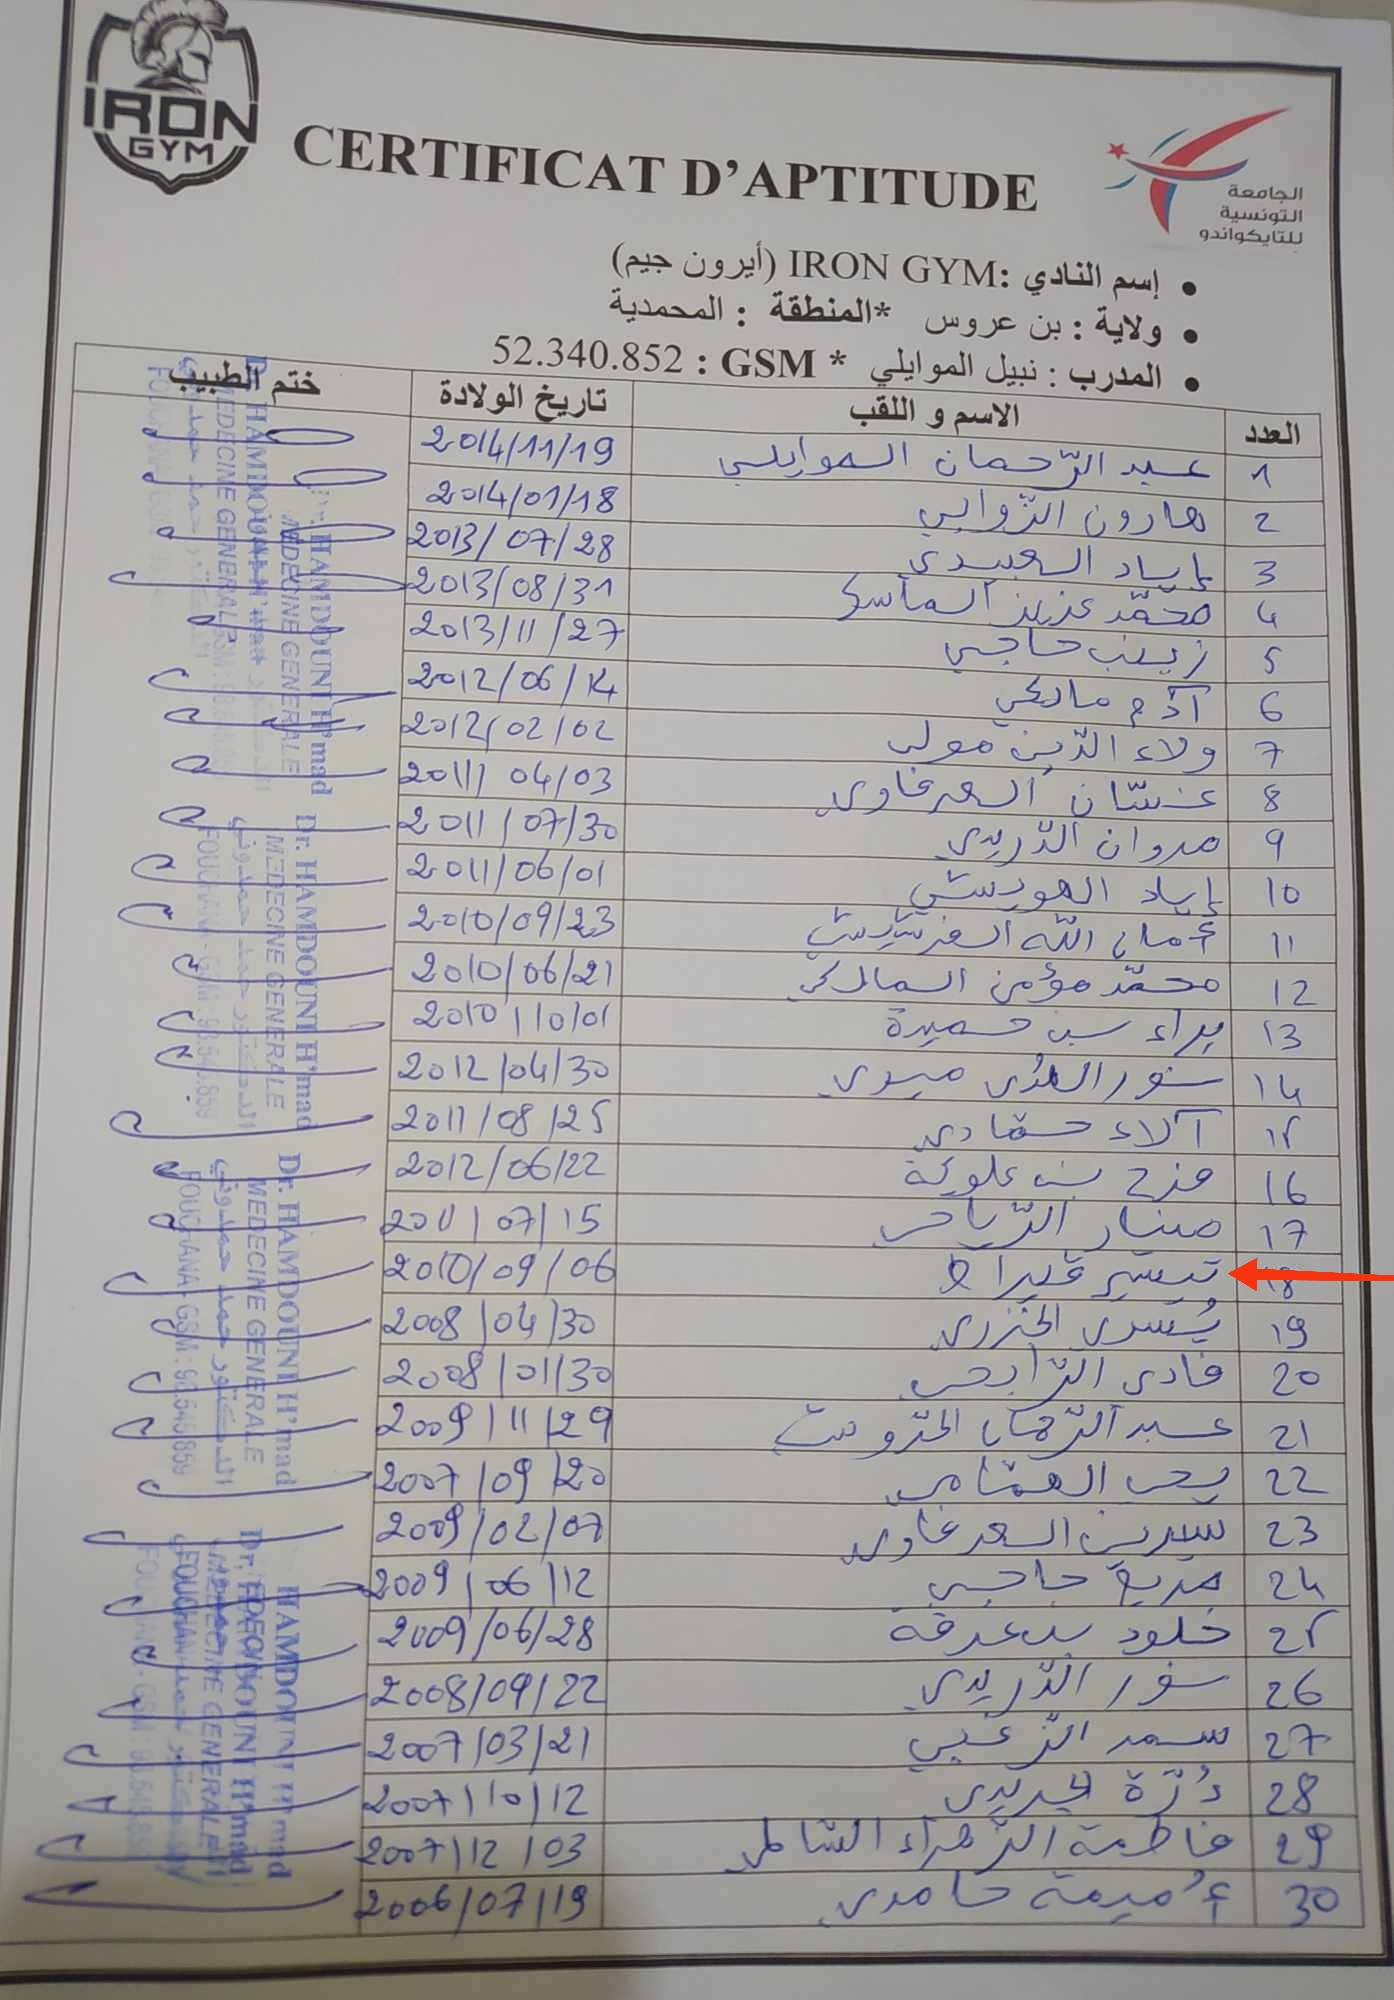 IRON
GYM
CERTIFICAT D'APTITUDE
الجامعة
التونسية
للتايكواندو
• إسم النادي :IRON GYM (أيرون جيم)
• ولاية : بن عروس *المنطقة : المحمدية
• المدرب : نبيل الموايلي * GSM : 52.340.852
العدد الاسم و اللقب تاريخ الولادة ختم الطبيب
1 عبد الرّحمان الموايلي 2014/11/19
2 هارون الزّوابي 2014/01/18
3 إياد العبيدي 2013/07/28
4 محمّد عزيز الماسكي 2013/08/31
5 زينب حاجي 2013/11/27
6 آدم مالكي 2012/06/14
7 ولاء الدّين مولى 2012/02/02
8 غسّان العرفاوي 2011/04/03
9 مروان الدّريدي 2011/07/30
10 إياد 2011/06/01
11 أمان الله 2010/09/23
12 محمّد مؤمن المالكي 2010/06/21
13 براء بن حميدة 2010/10/01
14 نور الهدى ميري 2012/04/30
15 آلاء حمّادي 2011/08/25
16 فرح بن علويّة 2012/06/22
17 منار الرّياحي 2011/07/15
18 تيسير قيراط 2010/09/06
19 يُسرى الخزري 2008/04/30
20 فادي الرّابحي 2008/01/30
21 عبد الرّحمان 2009/11/29
22 يحي العثماني 2007/09/20
23 سيرين العرفاوي 2009/02/07
24 مريم حاجي 2009/06/12
25 خلود بن عرفة 2009/06/28
26 نور الدّريدي 2008/09/22
27 سمر الزّغبي 2007/03/21
28 دُرّة الجريدي 2007/10/12
29 فاطمة الزّهراء الشّاطي 2007/12/03
30 أُميمة حامدي 2006/07/19
Dr. HAMDOUNI H'mad
MEDECINE GENERALE
الدكتور حمد حمدوني
FOUCHANA - GSM : 98.545.859